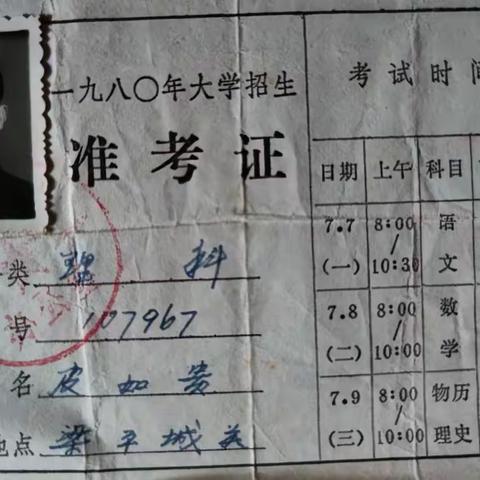 一九八〇年大学招生
准考证
类 理科
号 107967
名 皮如贵
地点 梁平城关
考试时间
日期 上午 科目
7.7 (一) 8:00/10:30 语文
7.8 (二) 8:00/10:00 数学
7.9 (三) 8:00/10:00 物理 历史